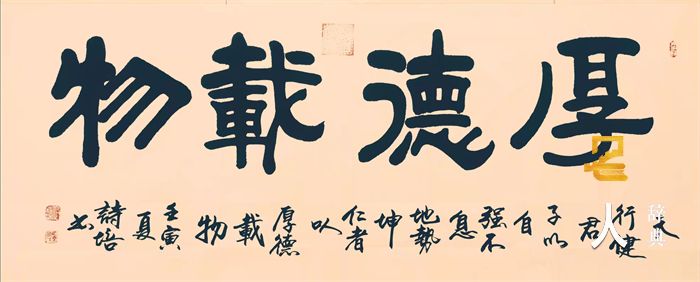 厚德載物
天行健君子以自强不息地勢坤仁者以厚德載物壬寅夏詩培书
名人辞典